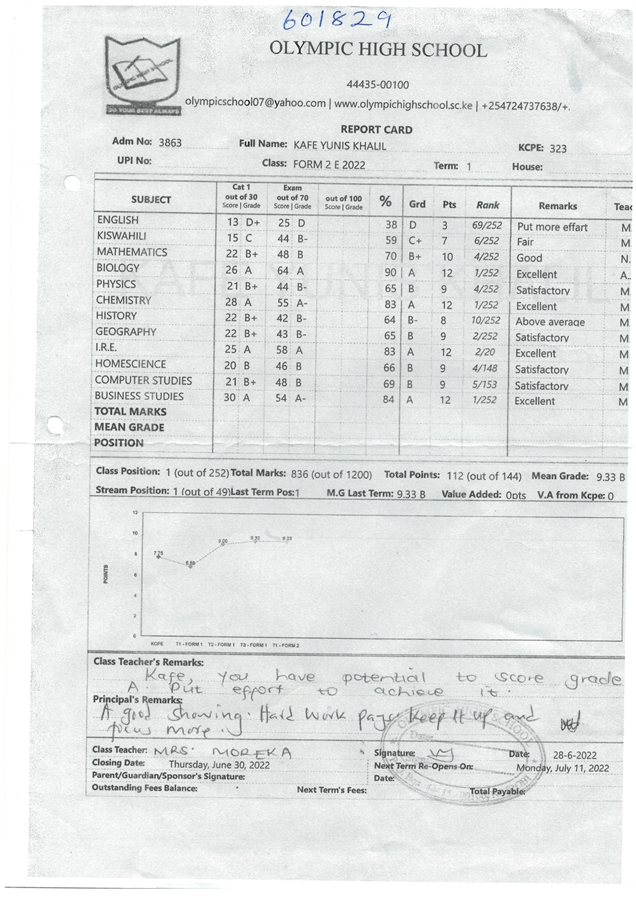 601829
OLYMPIC HIGH SCHOOL
OLYMPIC HIGH SCHOOL
DO YOUR BEST ALWAYS
44435-00100
olympicschool07@yahoo.com | www.olympichighschool.sc.ke | +254724737638/+.
REPORT CARD
Adm No: 3863 Full Name: KAFE YUNIS KHALIL KCPE: 323
UPI No: Class: FORM 2 E 2022 Term: 1 House:
SUBJECT Cat 1 out of 30 Score | Grade Exam out of 70 Score | Grade out of 100 Score | Grade % Grd Pts Rank Remarks Teac
ENGLISH 13 D+ 25 D 38 D 3 69/252 Put more effart M
KISWAHILI 15 C 44 B- 59 C+ 7 6/252 Fair M
MATHEMATICS 22 B+ 48 B 70 B+ 10 4/252 Good N.
BIOLOGY 26 A 64 A 90 A 12 1/252 Excellent A..
PHYSICS 21 B+ 44 B- 65 B 9 4/252 Satisfactory M
CHEMISTRY 28 A 55 A- 83 A 12 1/252 Excellent M
HISTORY 22 B+ 42 B- 64 B- 8 10/252 Above average M
GEOGRAPHY 22 B+ 43 B- 65 B 9 2/252 Satisfactory M
I.R.E. 25 A 58 A 83 A 12 2/20 Excellent M
HOMESCIENCE 20 B 46 B 66 B 9 4/148 Satisfactory M
COMPUTER STUDIES 21 B+ 48 B 69 B 9 5/153 Satisfactory M
BUSINESS STUDIES 30 A 54 A- 84 A 12 1/252 Excellent M
TOTAL MARKS
MEAN GRADE
POSITION
Class Position: 1 (out of 252) Total Marks: 836 (out of 1200) Total Points: 112 (out of 144) Mean Grade: 9.33 B
Stream Position: 1 (out of 49)Last Term Pos:1 M.G Last Term: 9.33 B Value Added: 0pts V.A from Kcpe: 0
12
10
8
6
4
2
0
POINTS
7.75
KCPE T1 - FORM 1 T2 - FORM 1 T3 - FORM 1 T1 - FORM 2
Class Teacher's Remarks:
Kafe, you have potential to score grade
A. Put effort to achieve it.
Principal's Remarks:
A good showing. Hard work pays keep it up and
focus more
Class Teacher: MRS. MOREKA Signature: Date: 28-6-2022
Closing Date: Thursday, June 30, 2022 Next Term Re-Opens On: Monday, July 11, 2022
Parent/Guardian/Sponsor's Signature: Date:
Outstanding Fees Balance: Next Term's Fees: Total Payable: